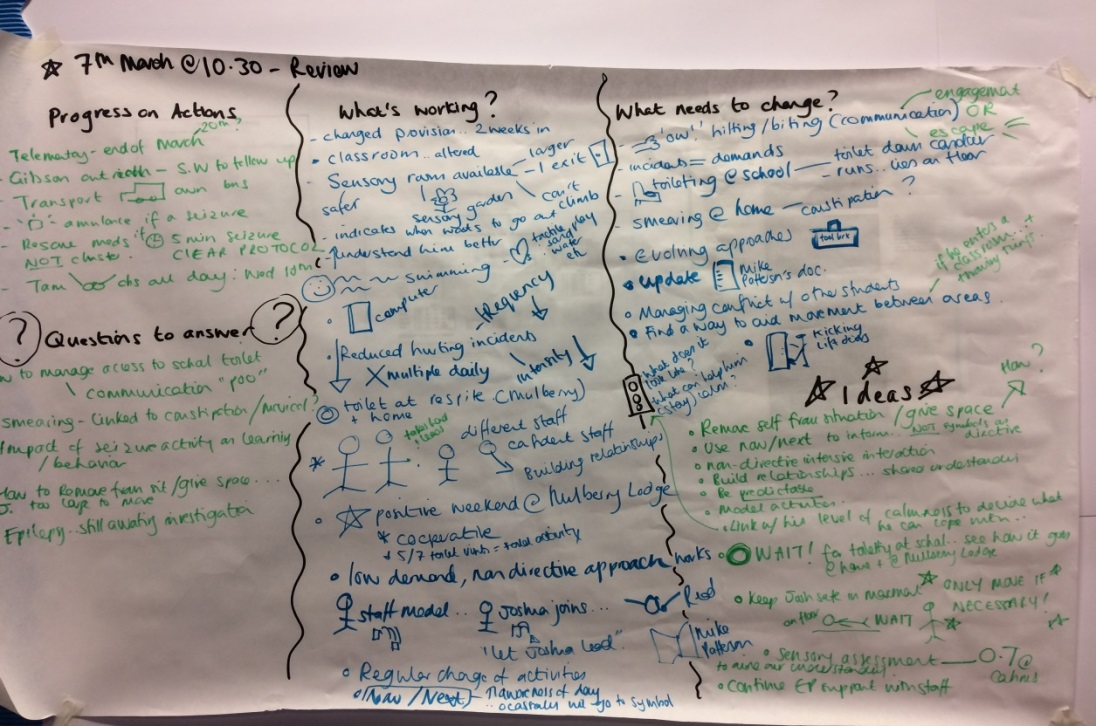 ☆ 7th March @ 10.30 - Review
Progress on Actions
20th?
Telemetry - end of March
- Gibson out - S.W to follow up
- Transport own bus
- ambulance if a seizure
- Rescue meds if 5 min seizure
NOT cluster. CLEAR PROTOCOL
all day: Wed 10th
? Questions to answer ?
How to manage access to school toilet
communication "poo"
Smearing - Linked to constipation /
Impact of seizure activity on learning
/ behavior
How to Remove from sit / give space ...
J. too large to move
Epilepsy .. still awaiting investigation
What's working?
- changed provision .. 2 weeks in
• classroom .. altered
- Sensory room available - larger
- 1 exit
safer
sensory garden
can't climb
- indicates when wants to go out
- understand him better
tactile
sand play
water
etc
swimming
• computer
- frequency
Reduced hurting incidents
intensity
X multiple daily
toilet at respite (Mulberry)
+ home
different staff
confident staff
Building relationships
• positive weekend @ Mulberry Lodge
* cooperative
* 5/7 toilet visits =
• low demand, non directive approach works
staff model .. Joshua joins ...
"let Joshua lead"
• Regular change of activities
(Now / Next) - awareness of day
.. ocasionally will go to symbol
What needs to change?
engagement
OR
escape
- "ow" hitting / biting (communication)
- incidents = demands
- toileting @ school - toilet down corridor
- runs .. lies on floor
- smearing @ home - constipation?
• Evolving approaches
tool box
• update Mike Patterson's doc.
• Managing conflict w/ other students
if he enters a
classroom .. +
throwing
• Find a way to aid movement between areas.
• Kicking
Lift doors
What does it
look like?
What can help him
(stay) calm?
☆ Ideas ☆
How?
• Remove self from situation / give space
• Use now/next to inform ... NOT symbols as
directive
• non-directive intensive interaction
• Build relationships ... shared understanding
• Be predictable
• Model activities
• Link w/ his level of calmness to decide what
he can cope with ..
WAIT! for toileting at school .. see how it goes
@ home + @ Mulberry Lodge
• Keep Josh safe in ☆ ONLY MOVE IF
NECESSARY!
on floor WAIT
Read
Mike
Patterson
• Sensory assessment - O.T @
to our understanding
• Continue EP support with staff